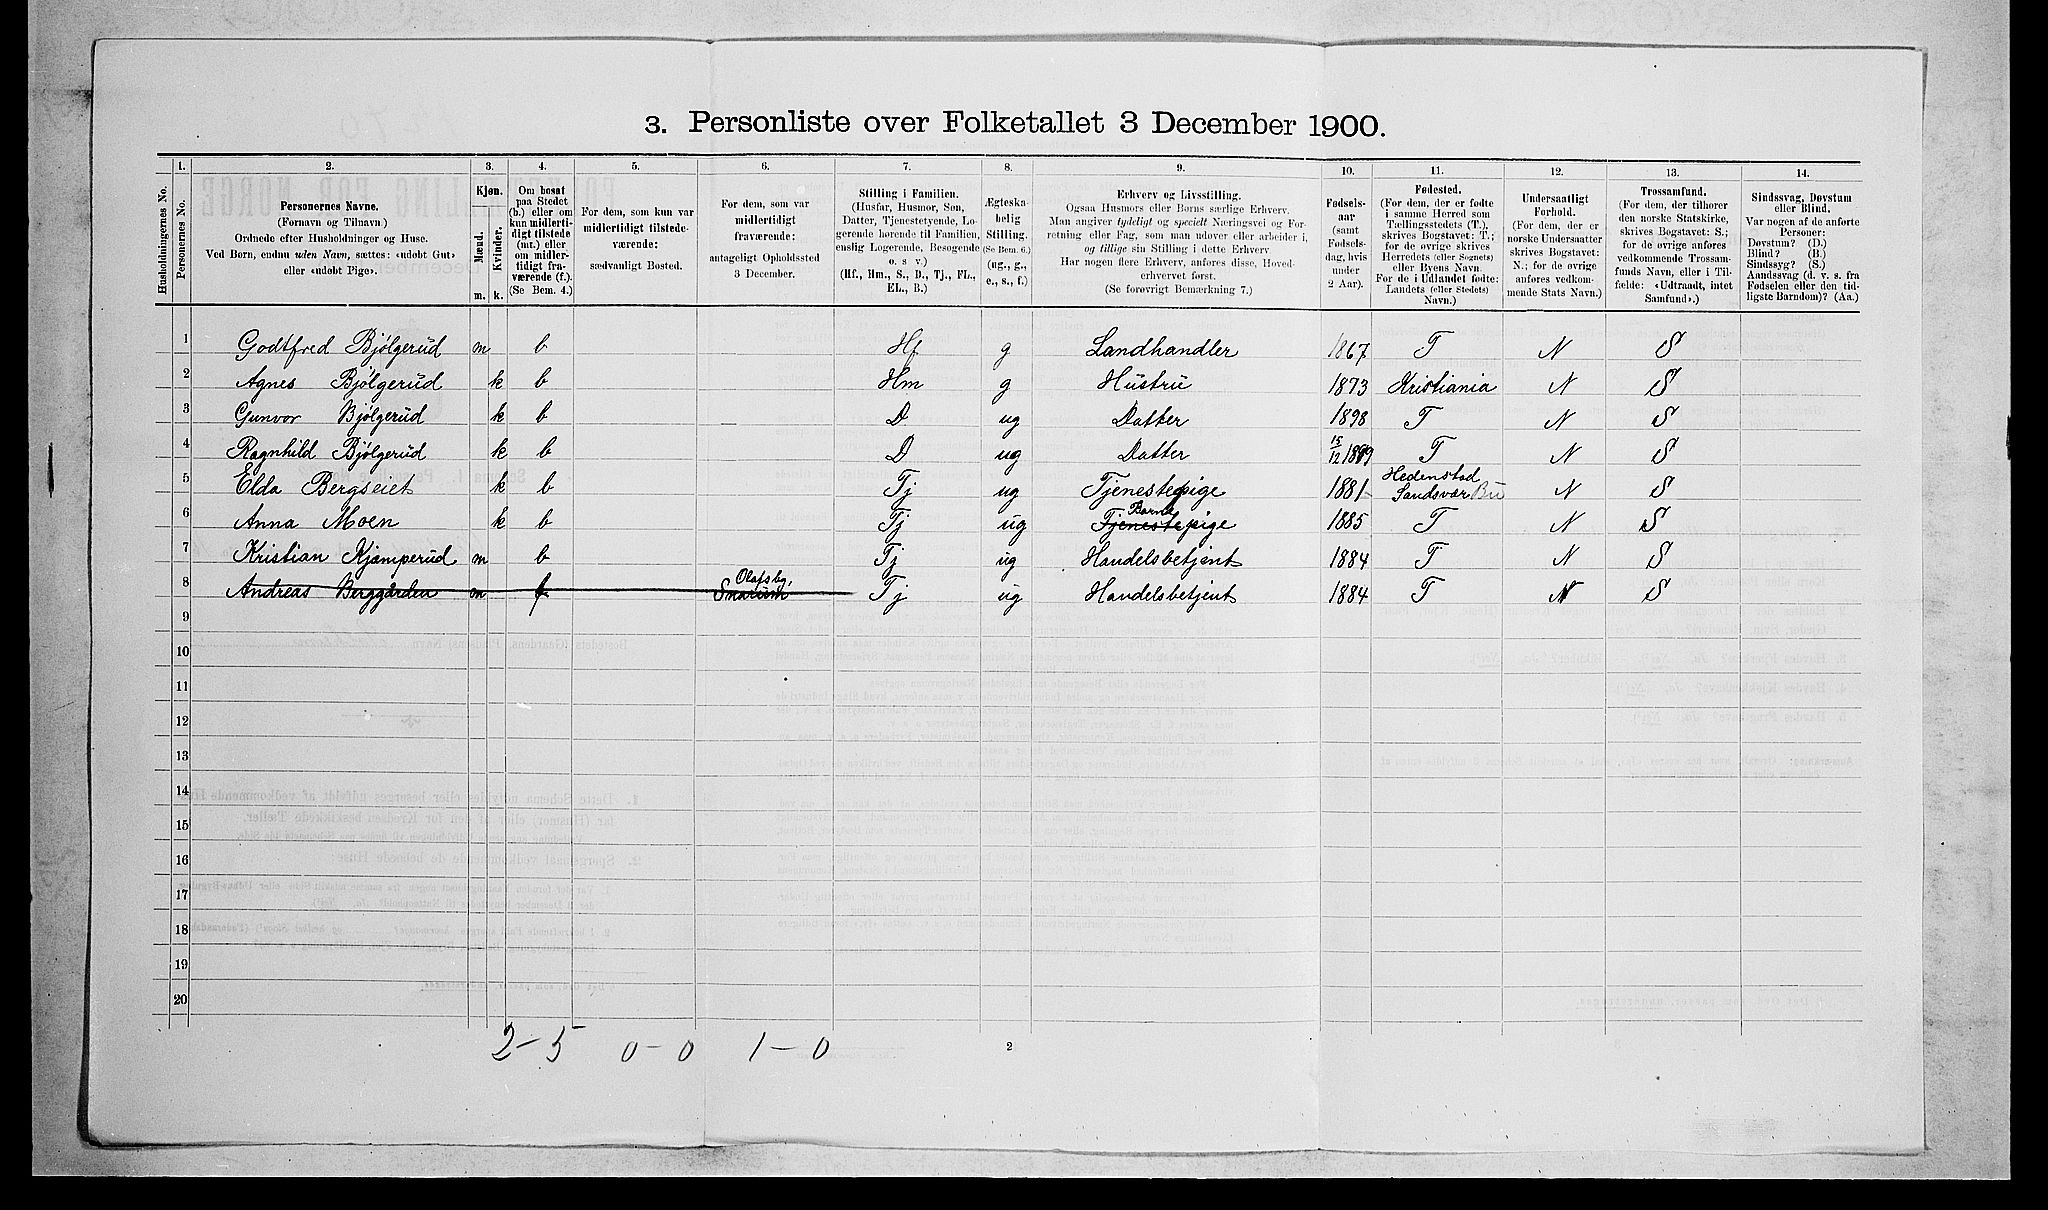 3. Personliste over Folketallet 3 December 1900.
1. 2. 3. 4. 5. 6. 7. 8. 9. 10. 11. 12. 13. 14.
Husholdningernes No.
Personernes No.
Personernes Navne.
(Fornavn og Tilnavn.)
Ordnede efter Husholdninger og Huse.
Ved Børn, endnu uden Navn, sættes: «udøbt Gut»
eller «udøbt Pige».
Kjøn.
Mænd.
Kvinder.
m. k.
Om bosat
paa Stedet
(b.) eller om
kun midlerti-
digt tilstede
(mt.) eller
om midler-
tidigt fra-
værende (f.).
(Se Bem. 4.)
For dem, som kun var
midlertidigt tilstede-
værende:
sædvanligt Bosted.
For dem, som var
midlertidigt
fraværende:
antageligt Opholdssted
3 December.
Stilling i Familien.
(Husfar, Husmor, Søn,
Datter, Tjenestetyende, Lo-
gerende hørende til Familien,
enslig Logerende, Besøgende
o. s v.)
(Hf., Hm., S., D., Tj., FL.,
EL., B.)
Ægteska-
belig
Stilling.
(Se Bem. 6.)
(ug., g.,
e., s., f.)
Erhverv og Livsstilling.
Ogsaa Husmors eller Børns særlige Erhverv.
Man angiver tydeligt og specielt Næringsvei og For-
retning eller Fag, som man udøver eller arbeider i,
og tillige sin Stilling i dette Erhverv.
Har nogen flere Erhverv, anføres disse, Hoved-
erhvervet først.
(Se forøvrigt Bemærkning 7.)
Fødsels-
aar
(samt
Fødsels-
dag, hvis
under
2 Aar).
Fødested.
(For dem, der er fødte
i samme Herred som
Tællingsstedets (T.),
skrives Bogstavet: T.;
for de øvrige skrives
Herredets (eller Sognets)
eller Byens Navn.
For de i Udlandet fødte:
Landets (eller Stedets)
Navn.)
Undersaatligt
Forhold.
(For dem, der er
norske Undersaatter
skrives Bogstavet:
N.; for de øvrige
anføres vedkom-
mende Stats Navn.)
Trossamfund.
(For dem, der tilhører
den norske Statskirke,
skrives Bogstavet: S.;
for de øvrige anføres
vedkommende Trossam-
funds Navn, eller i Til-
fælde: «Udtraadt, intet
Samfund».)
Sindssvag, Døvstum
eller Blind.
Var nogen af de anførte
Personer:
Døvstum? (D.)
Blind? (B.)
Sindssyg? (S.)
Aandssvag (d. v. s. fra
Fødselen eller den tid-
ligste Barndom)? (Aa.)
1 Godtfred Bjølgerud m b Hf g Landhandler 1867 T N S
2 Agnes Bjølgerud k b Hm g Hustru 1873 Kristiania N S
3 Gunvor Bjølgerud k b D ug Datter 1898 T N S
4 Ragnhild Bjølgerud k b D ug Datter 15/12 1899 T N S
5 Elda Bergseiet k b Tj ug Tjenestepige 1881 Hedenstad Sandsvær Bu N S
6 Anna Moen k b Tj ug Tjenestepige Barne 1885 T N S
7 Kristian Kjæmperud m b Tj ug Handelsbetjent 1884 T N S
8 Andreas Berggården m f Olafsby, Snarum Tj ug Handelsbetjent 1884 T N S
9
10
11
12
13
14
15
16
17
18
19
20
2-5 0-0 1-0
2